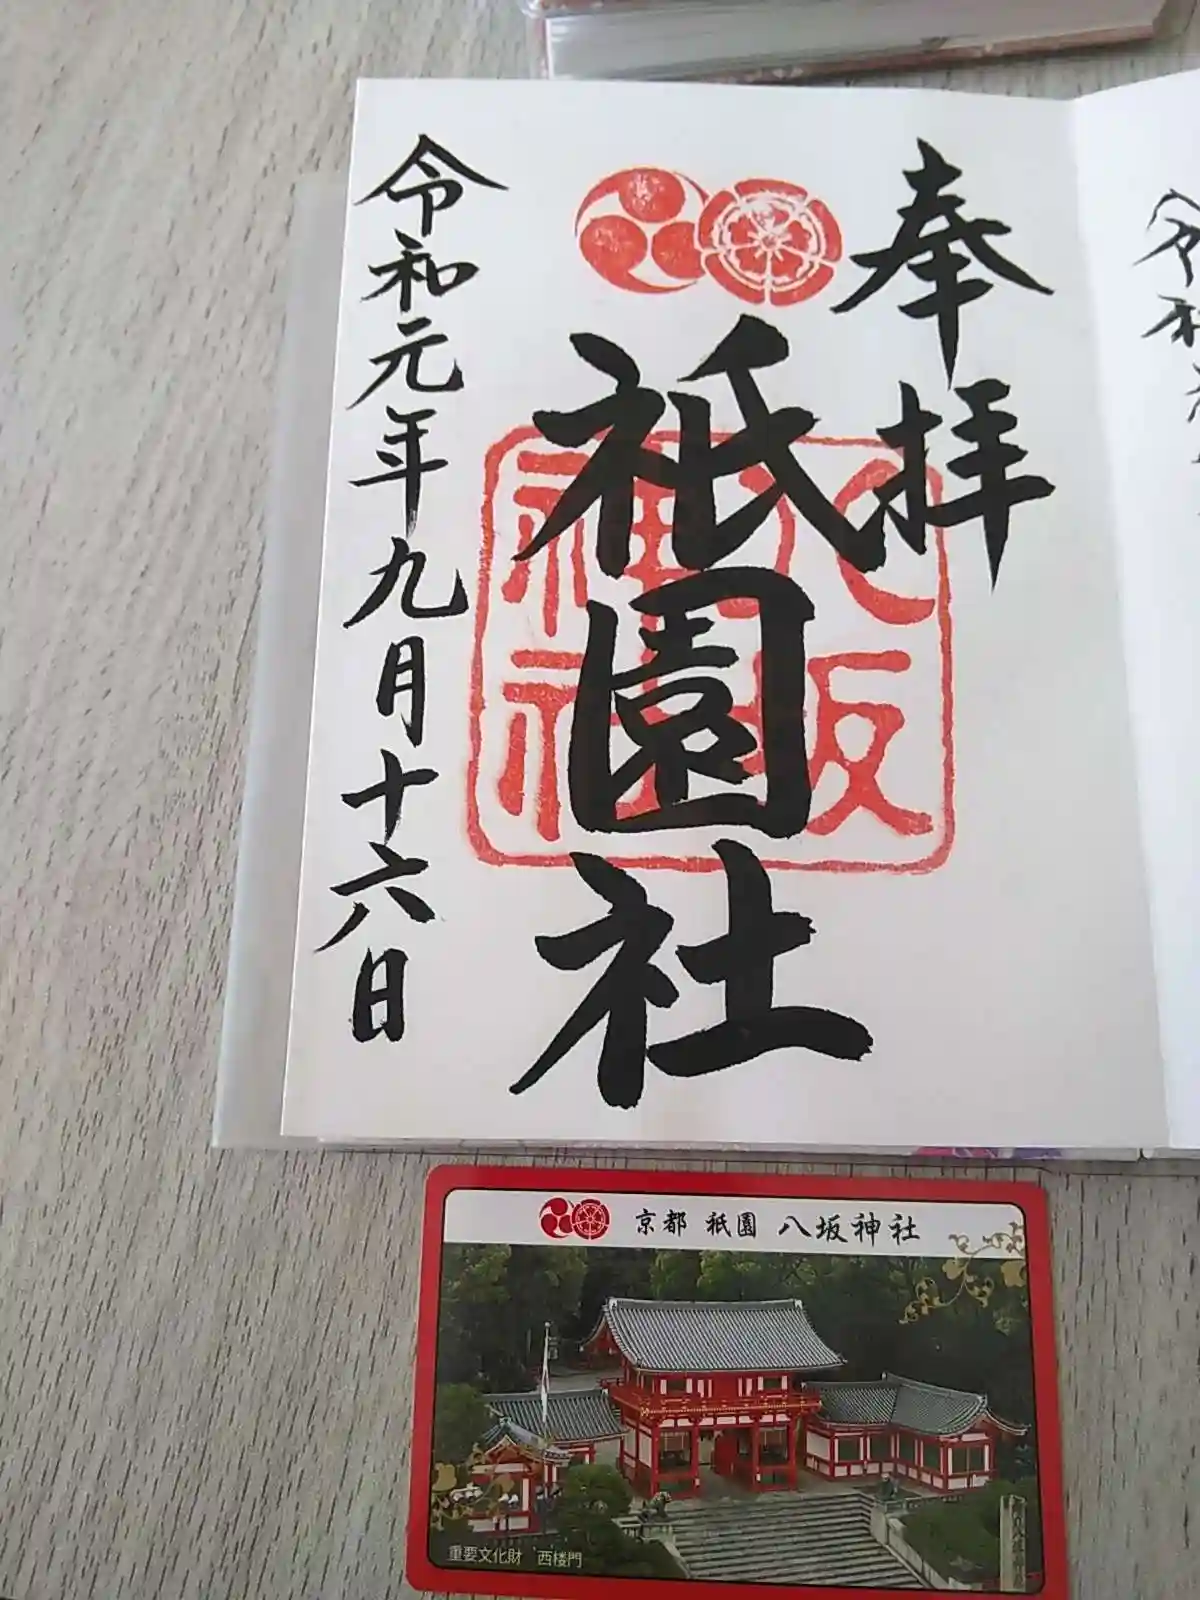 奉拝
祇園社
八坂
神社
令和元年九月十六日
京都 祇園 八坂神社
重要文化財 西楼門